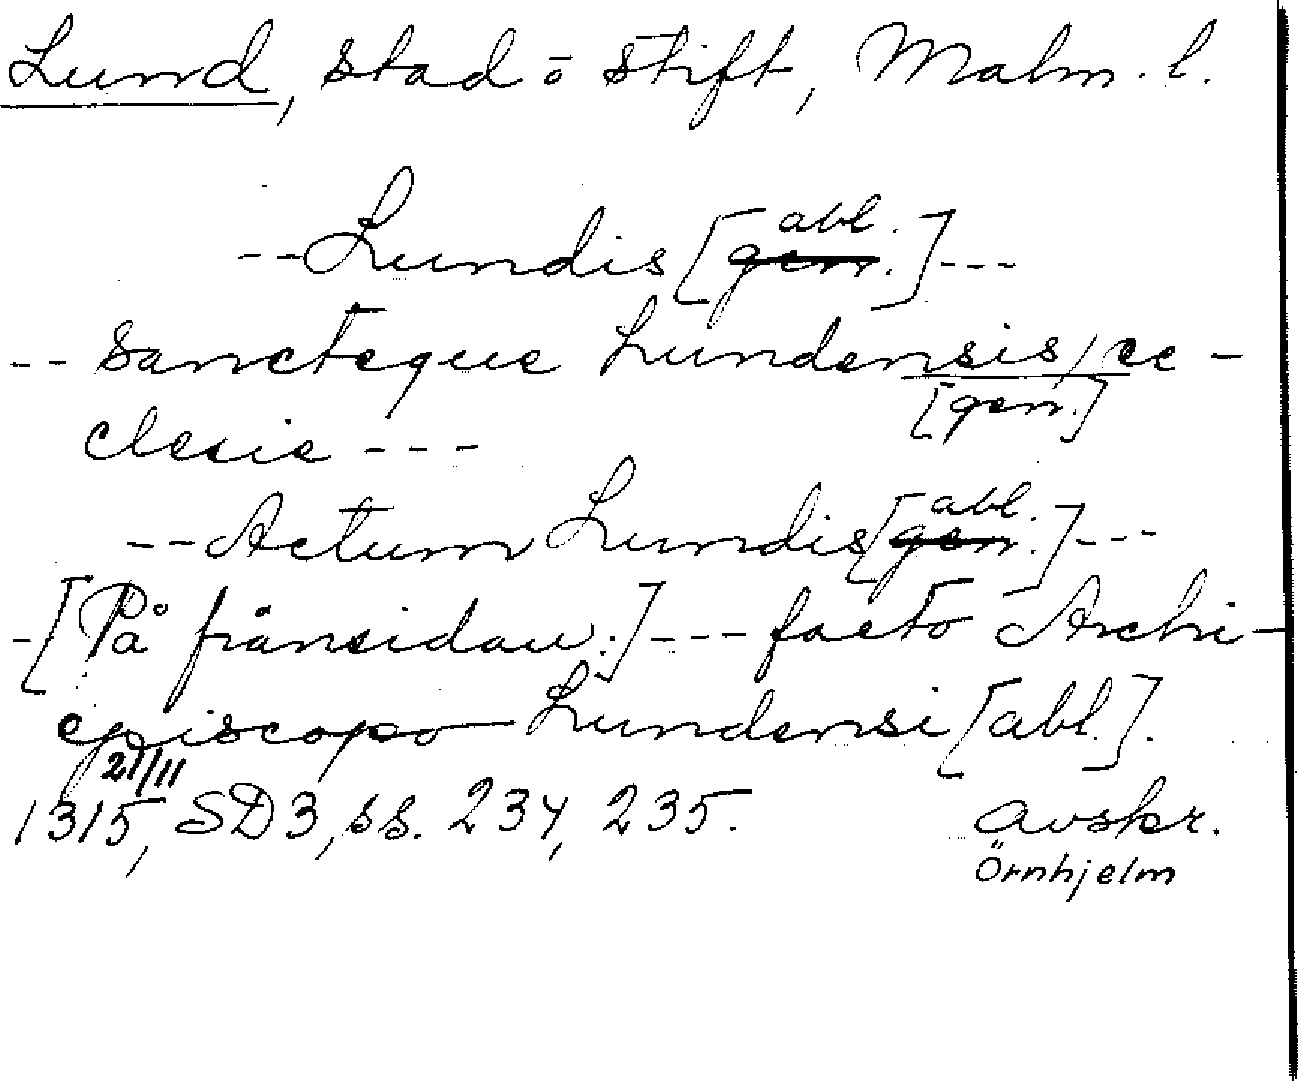 Lund, stad o stift, Malm. l.
--Lundis [gen. abl.]---
-- Sancteque Lundensis/ec-
[gen.]
clesie ---
--Actum Lundis [gen. abl.]---
-[På frånsidan:]--- facto Archi-
episcopo Lundensi [abl.].
21/11
1315, SD3, ss. 234, 235. avskr.
Örnhjelm